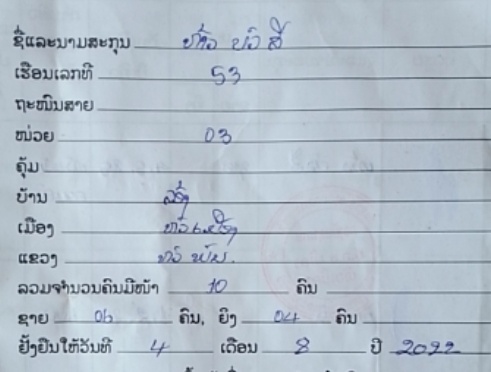 ຊື່ແລະນາມສະກຸນ ທ້າວ ບົວ ສີ
ເຮືອນເລກທີ 53
ຖະໜົນສາຍ
ໜ່ວຍ 03
ຄຸ້ມ
ບ້ານ
ເມືອງ ຫົວເມືອງ
ແຂວງ ຫົວ ພັນ.
ລວມຈຳນວນຄົນມີໜ້າ 10 ຄົນ
ຊາຍ 06 ຄົນ, ຍິງ 04 ຄົນ
ຢັ້ງຢືນໃຫ້ວັນທີ 4 ເດືອນ 8 ປີ 2022